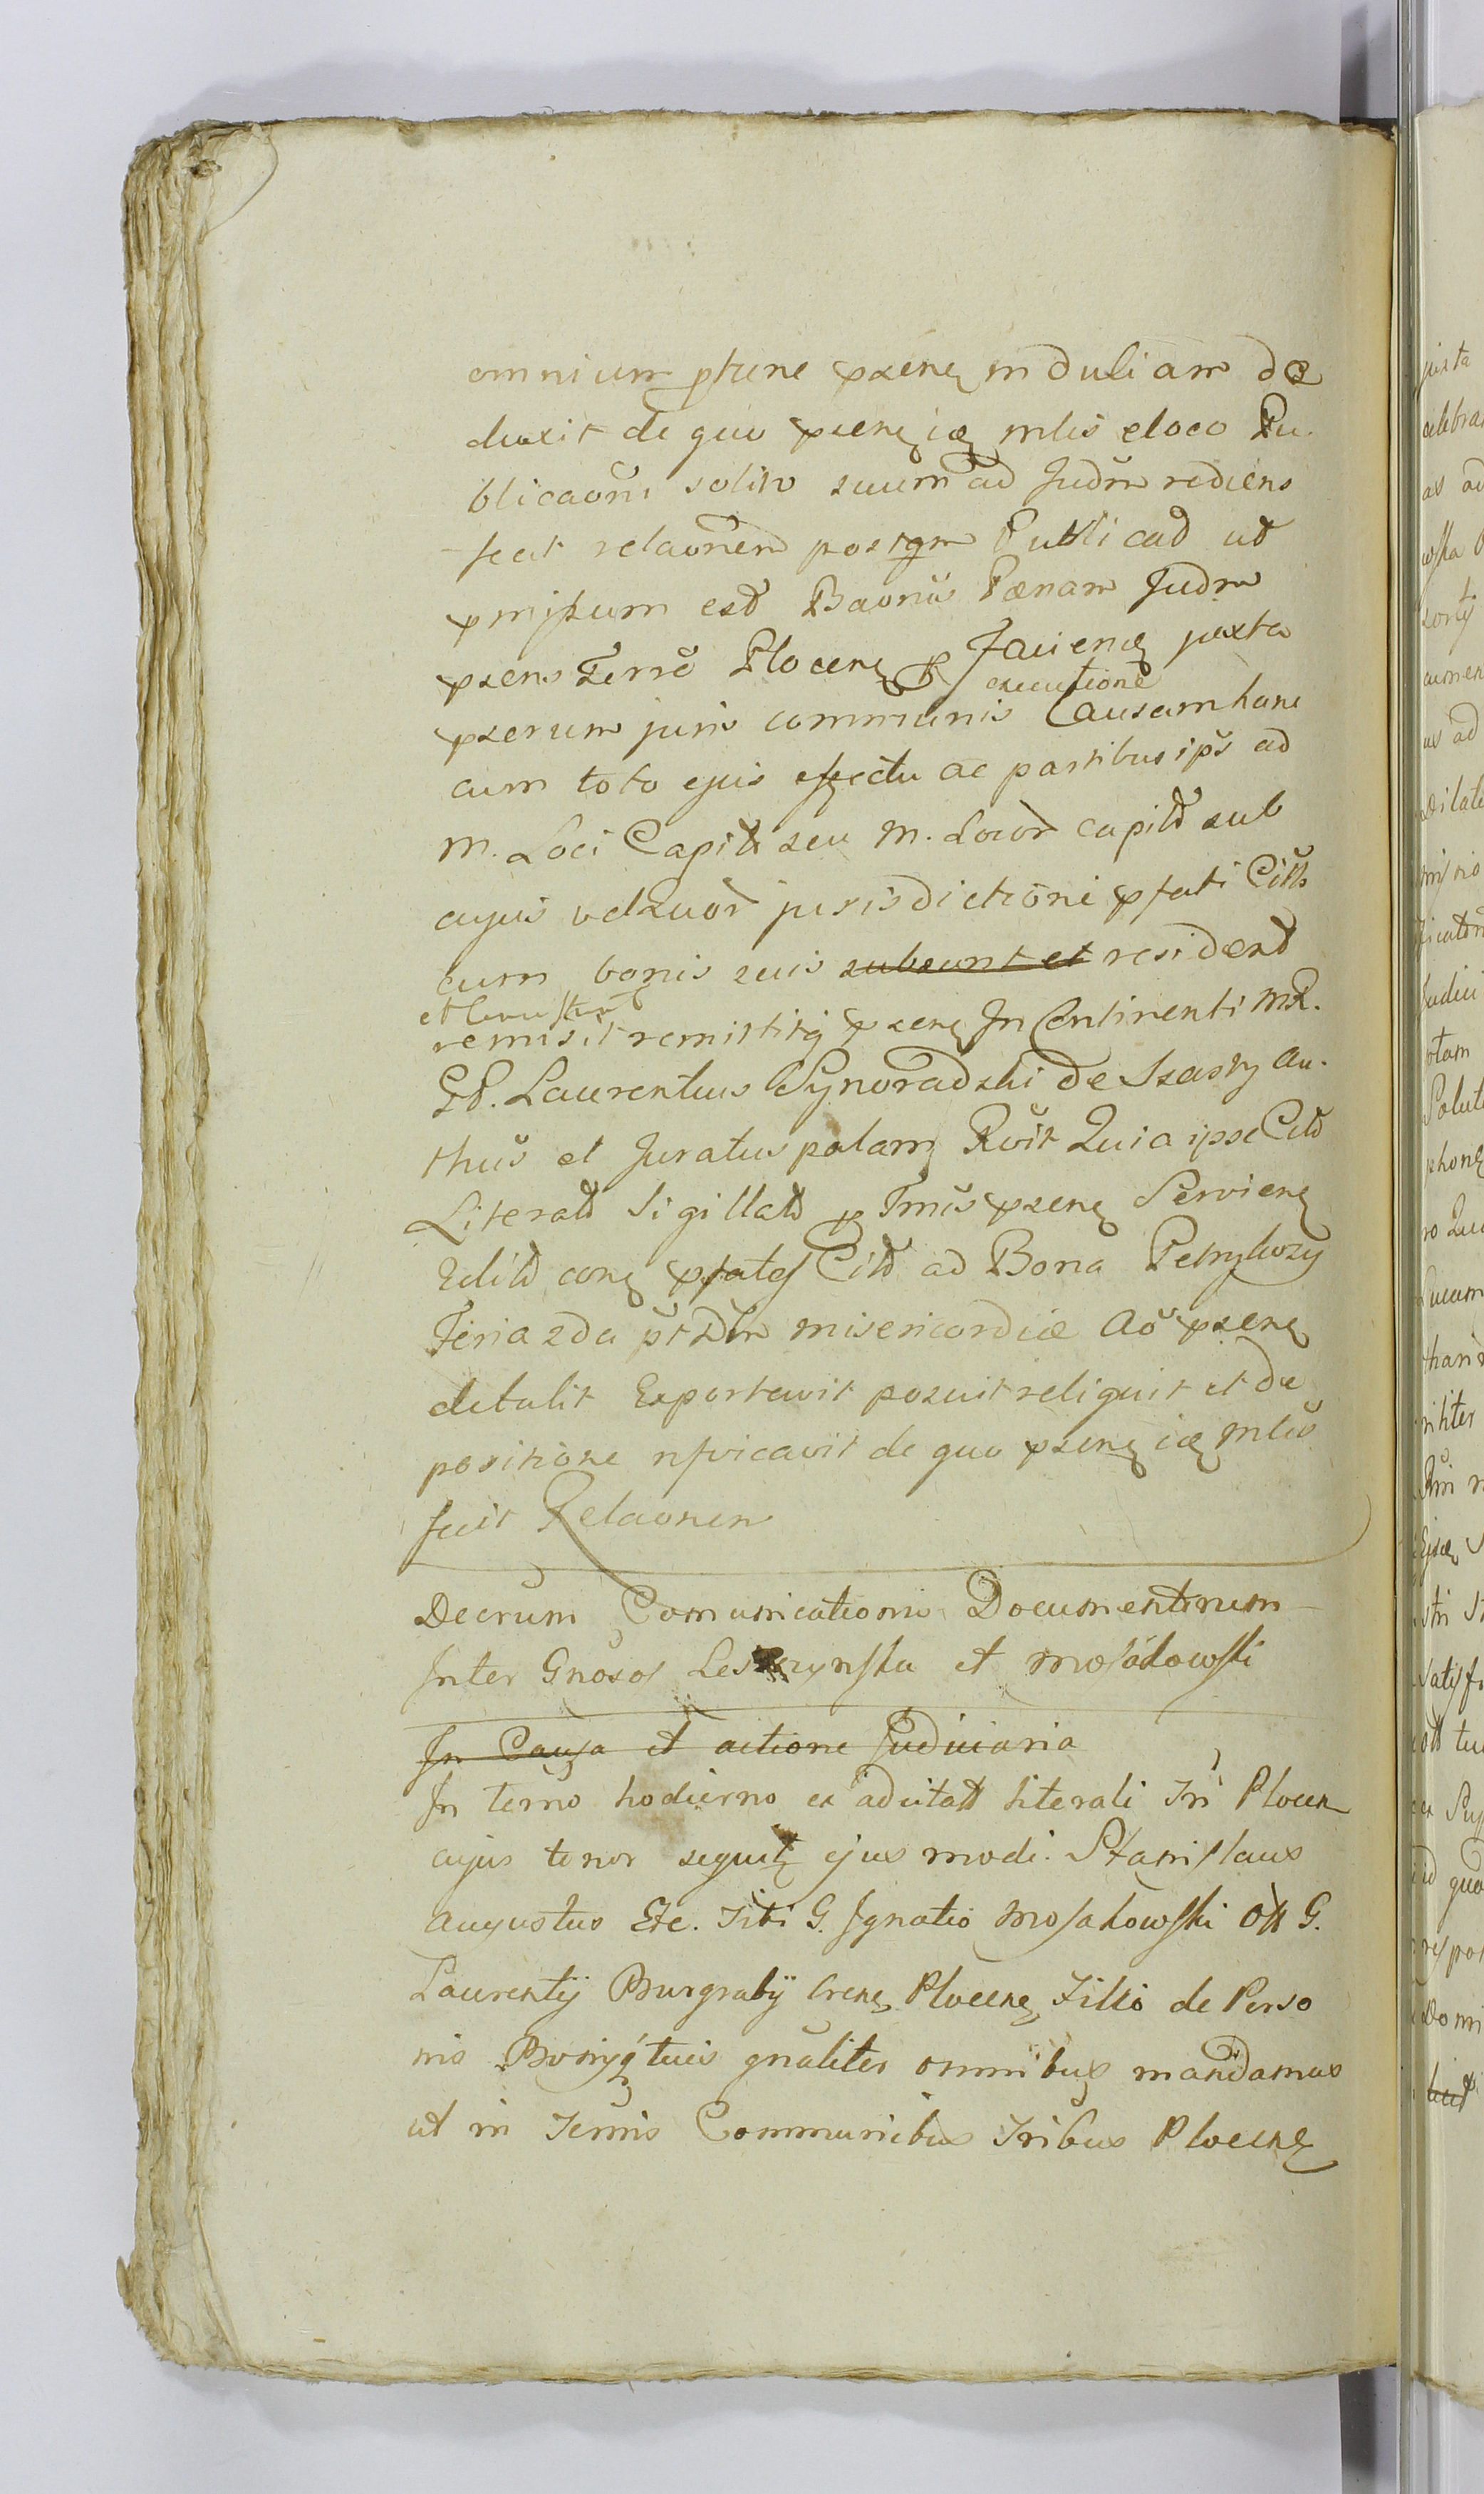 omnium ptune pxenę induliam de
duxit de quo pxenę iœ mlis eloco Pu
blicaoni solito suum ad Judm rediens
fecit relaonem postqm Publicað uð
pmissum esð Baonis Pœnam Judm
pxens Terrē Plocenę p Facienđ juxta
executione
pxerum juris communis Causam hanc
cum toto ejus effectu ac partibus ips ad
M. Loci Capit seu M. Locor capitð sub
cujus vel quor jurisdictione pfati Citti
cum bonis suis subsunt et residenð
et
remisit remittitq pxenę In Continenti MR.
Gð. Laurentius Synoradzki de Szasty Au-
thus et Juratus palam Rōit Quia ipse Citð
Literatð Sigillatð p Tmis pxenę Servienę
Editð conę pfatos Citð ad Bona Petrykozy
Feria 2da pt Dm misericordiæ Aō pxenę
detulit Exportavit posuit reliquit et de
positione nficavit de quo pxenę iœ Mlis
fecit Relaonem
Decrum Comunicationis Documentorum
Inter Gnosos Leszczynska et Mosakowski
In Causa et actione Judiciaria
In termo hodierno ex adcitatt literali Tri Plocen
cujus tenor sequitę ejus modi. Stanislaus
Augustus Etc. Tibi G. Ignatio Mosakowski Ott G.
Laurentij Burgrabij Crenę Plocenę Filio de Perso
nis Bonisq tuis gnaliter omnibus mandamus
ut in Termis Communibus Tribus Plocenę